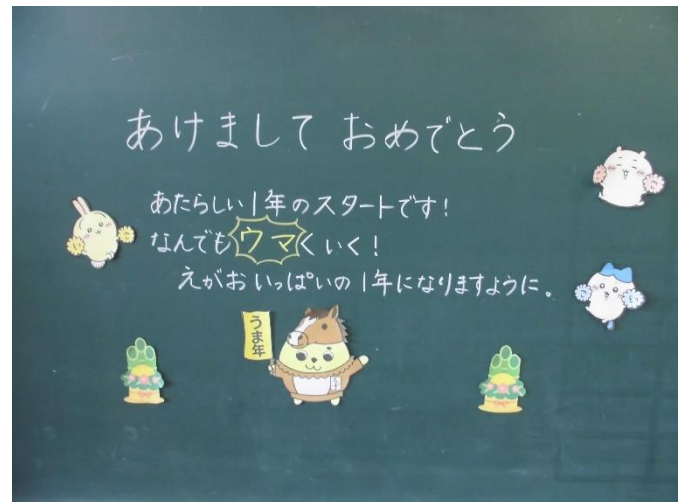 あけまして おめでとう
あたらしい1年のスタートです!
なんでもウマくいく!
えがおいっぱいの1年になりますように。
うま年